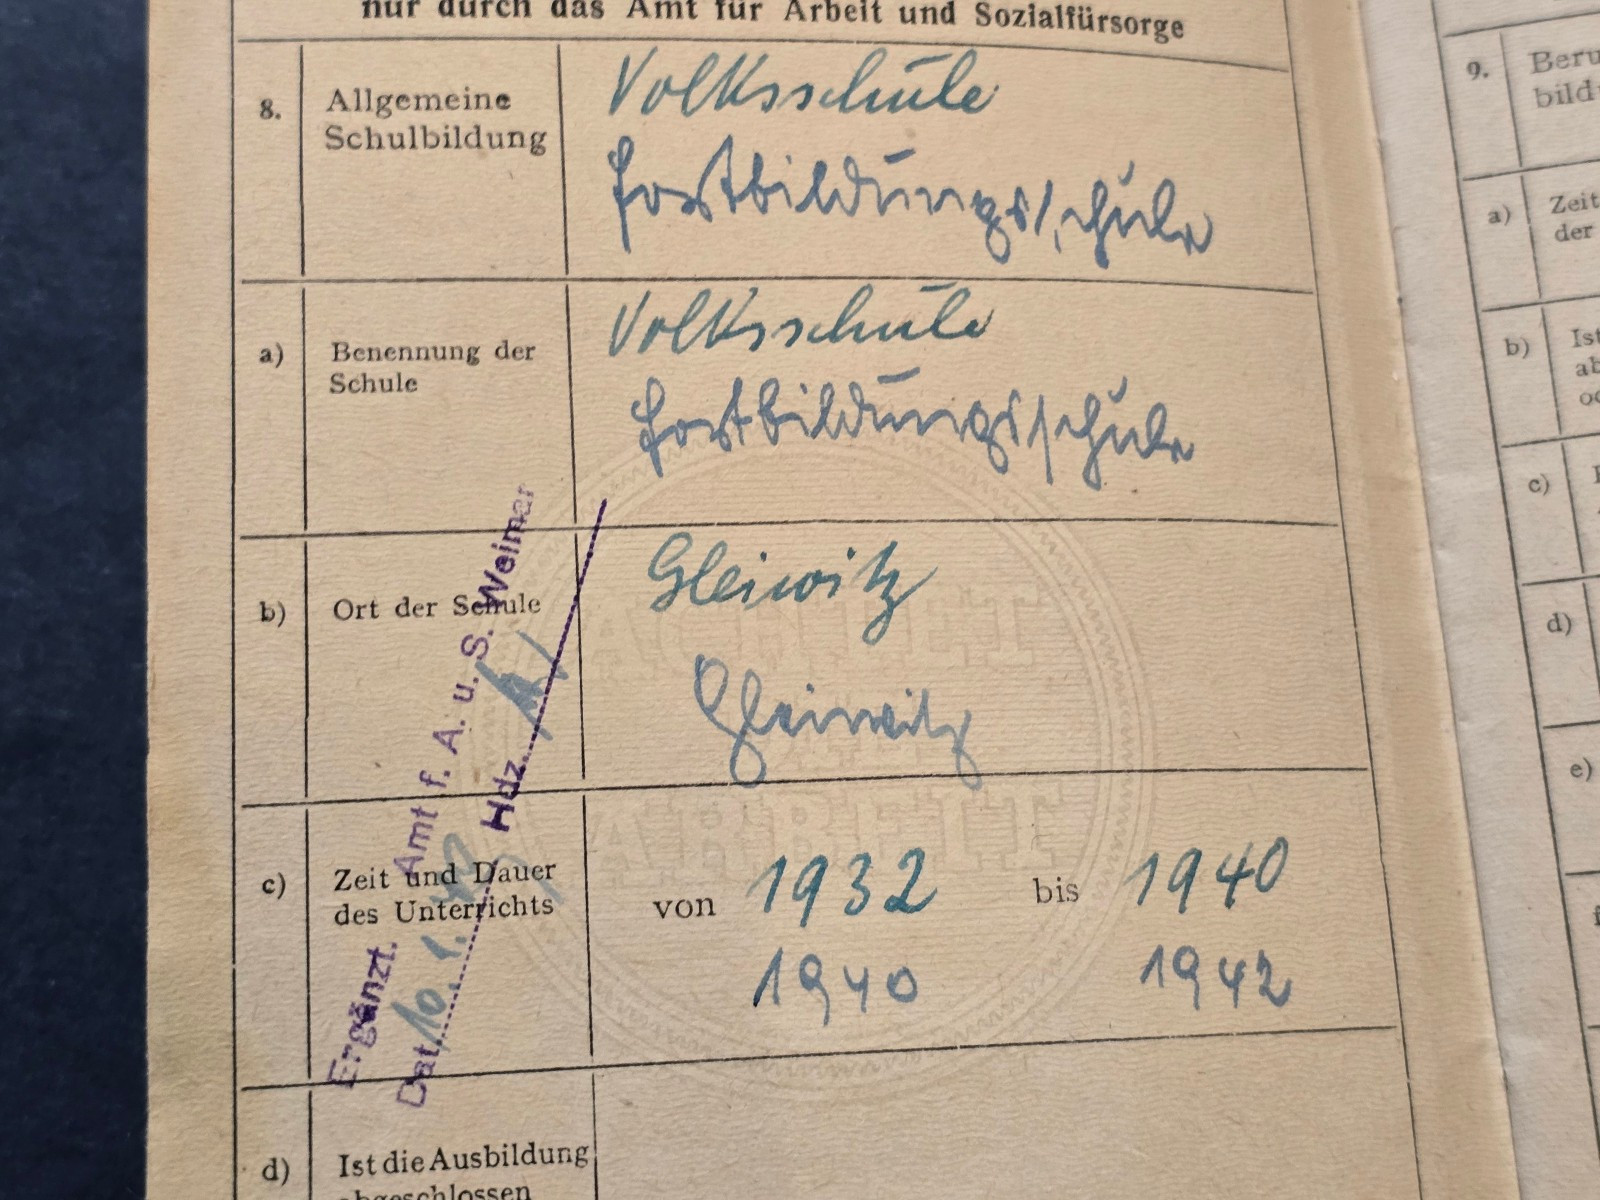 nur durch das Amt für Arbeit und Sozialfürsorge
8. Allgemeine Schulbildung
Volksschule
Fortbildungsschule
a) Benennung der Schule
Volksschule
Fortbildungsschule
b) Ort der Schule
Gleiwitz
Gleiwitz
c) Zeit und Dauer des Unterrichts
von 1932 bis 1940
1940 1942
d) Ist die Ausbildung
abgeschlossen
Ergänzt. Amt f. A. u. S. Weimar
Dat. 10. 1. Hdz.
9. Beru
bild
a) Zeit
der
b) Ist
ab
c)
d)
e)